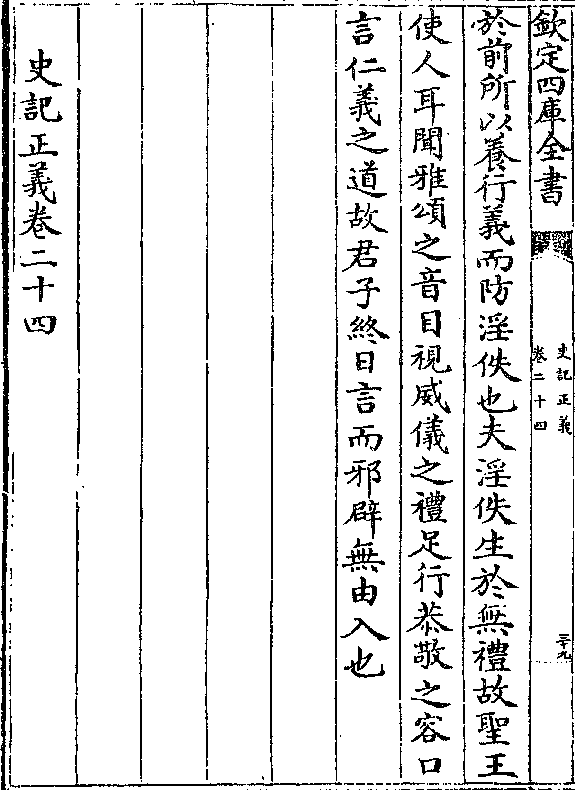 欽定四庫全書
史記正義
卷二十四
三十九
於前所以養行義而防淫佚也夫淫佚生於無禮故聖王
使人耳聞雅頌之音目視威儀之禮足行恭敬之容口
言仁義之道故君子終日言而邪辟無由入也
史記正義卷二十四